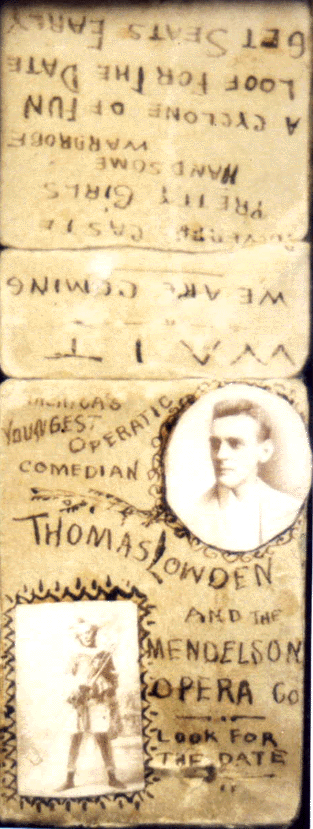 WAIT
WE ARE COMING
PRETTY GIRLS
HANDSOME
WARDROBE
A CYCLONE OF FUN
LOOF FOR THE DATE
GET SEATS EARLY
AMERICA'S
YOUNGEST
OPERATIC
COMEDIAN
THOMAS LOWDEN
AND THE
MENDELSON
OPERA CO
LOOK FOR
THE DATE